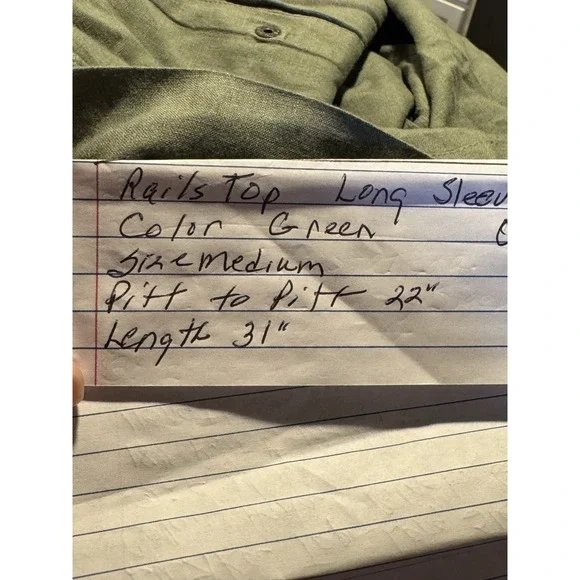 Rails Top Long Sleev
Color Green
Size medium
Pitt to Pitt 22"
Length 31"